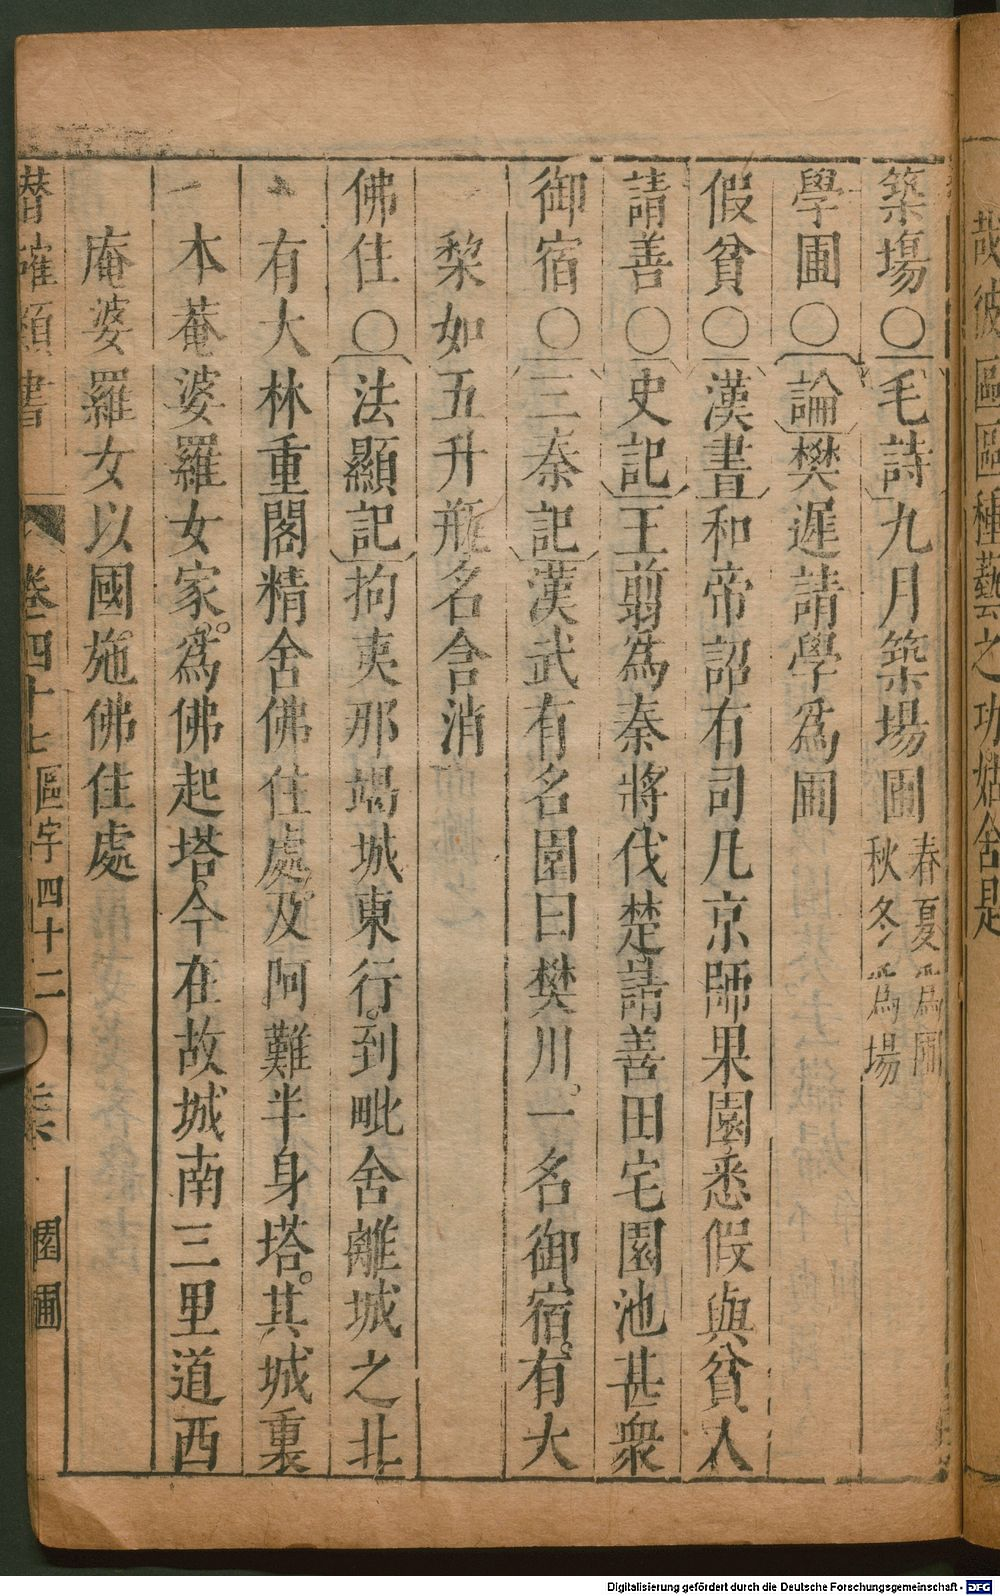 哉彼區區種藝之功姑舍是
築場○毛詩九月築場圃春夏爲圃秋冬爲場
學圃○論樊遲請學爲圃
假貧○漢書和帝詔有司凡京師果園悉假與貧人
請善○史記王翦爲秦將伐楚請善田宅園池甚衆
御宿○三秦記漢武有名園曰樊川一名御宿有大
棃如五升瓶名含消
佛住○法顯記拘夷那竭城東行到毗舍離城之北
有大林重閣精舍佛住處及阿難半身塔其城裏
本菴婆羅女家爲佛起塔今在故城南三里道西
庵婆羅女以國施佛住處
潛確類書 卷四十七區宇四十二 園圃
Digitalisierung gefördert durch die Deutsche Forschungsgemeinschaft - DFG